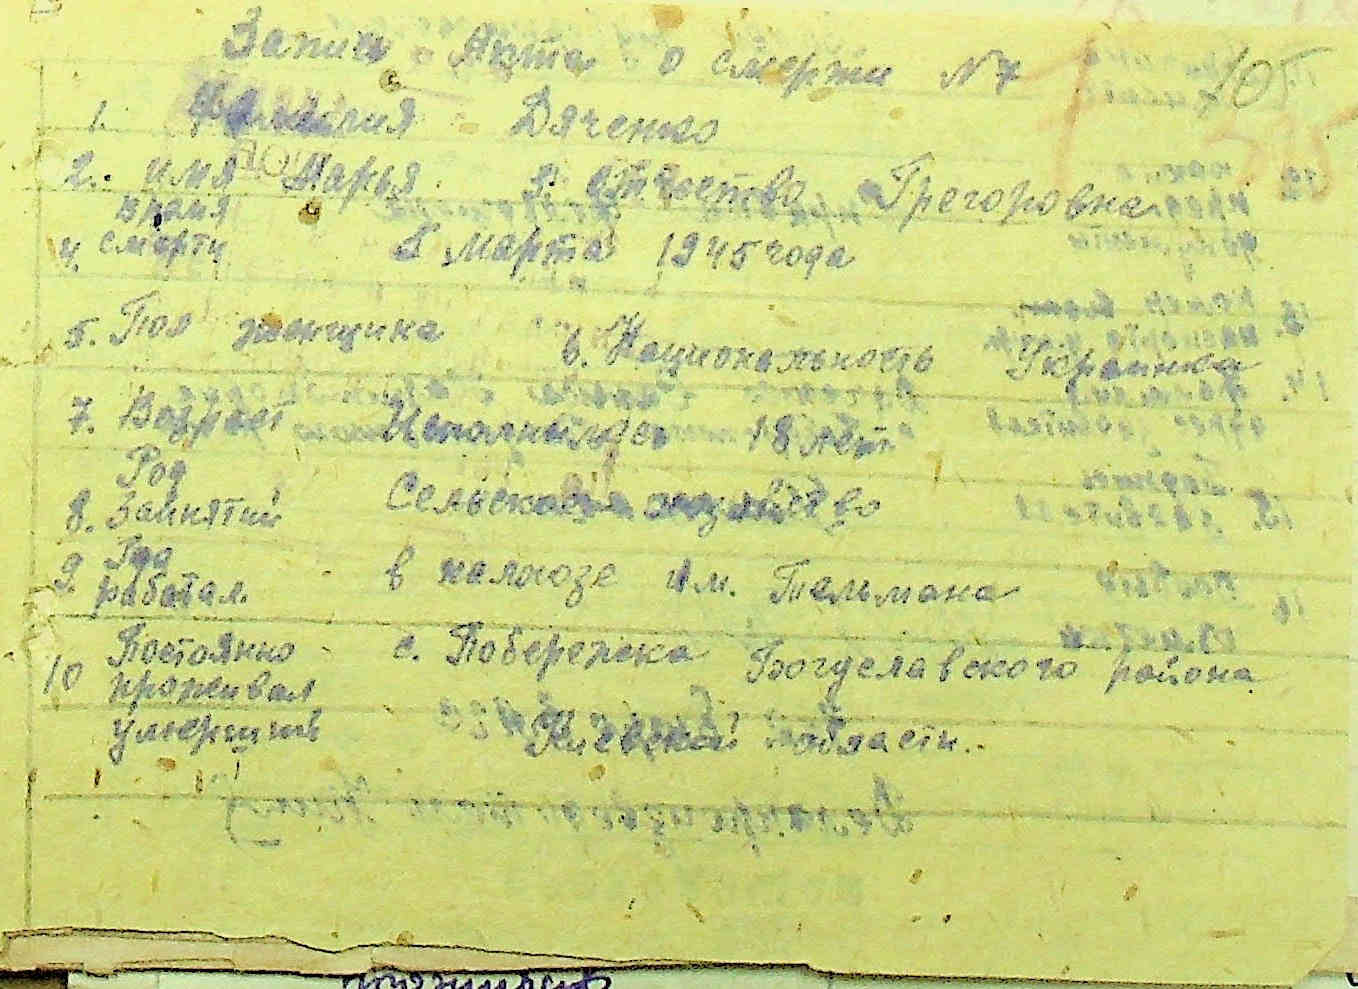 Запись Акта о смерти №7
1. Фамилия Дяченко
2. имя Марья 3. отчество Грегоровна
время
4. смерти 8 марта 1945 года
5. Пол женщина 6. Национальность Украинка
7. Возраст Исполнилось 18 лет
Род
8. Занятий Сельское хозяйство
Где
9. работал в колхозе им. Тельмана
Постоянно с. Побережка Богуславского района
10 проживал
умерший Киевской области.